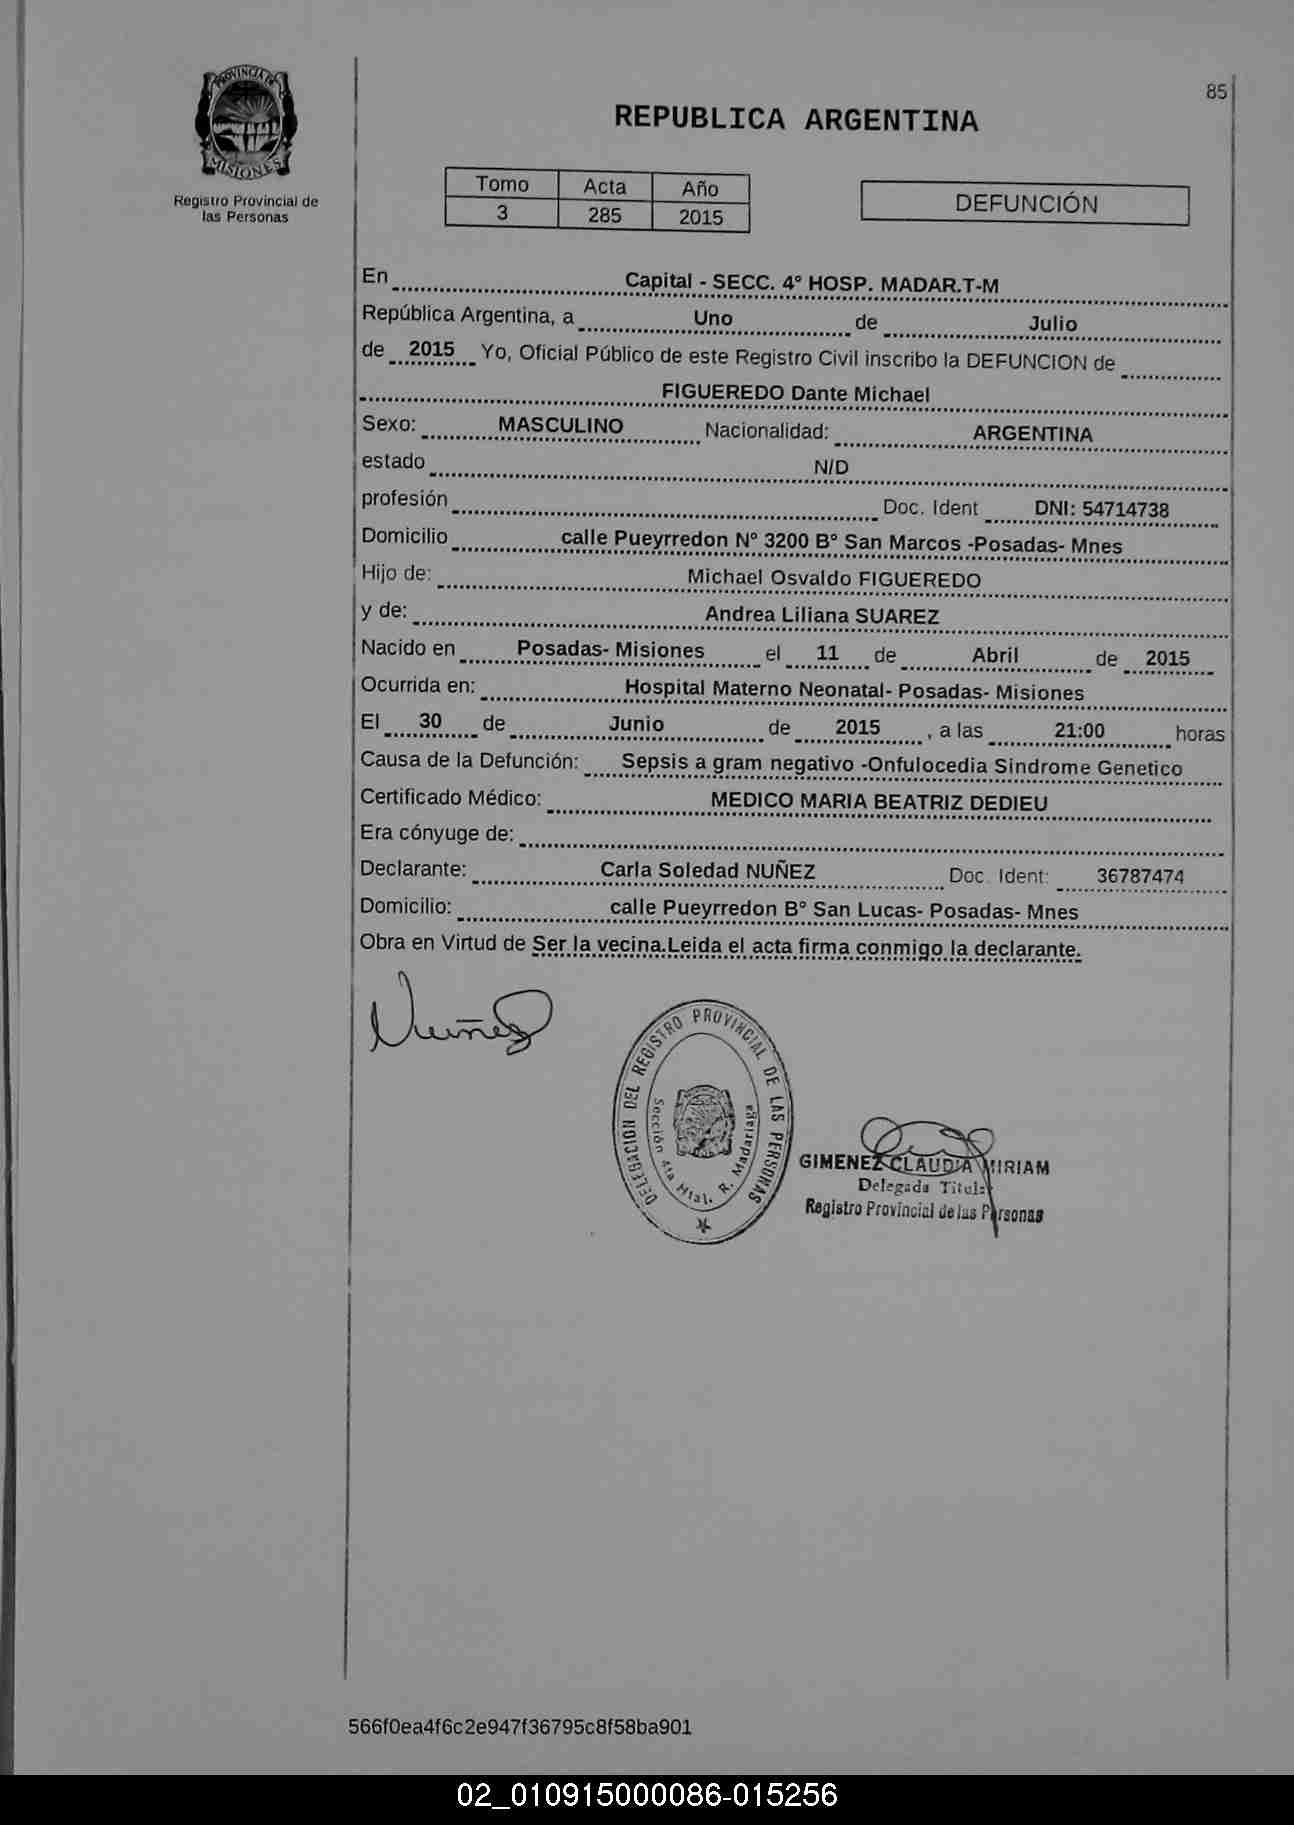 85
PROVINCIA DE
MISIONES
Registro Provincial de
las Personas
REPUBLICA ARGENTINA
Tomo Acta Año
3 285 2015
DEFUNCIÓN
En Capital - SECC. 4° HOSP. MADAR.T-M
República Argentina, a Uno de Julio
de 2015 Yo, Oficial Público de este Registro Civil inscribo la DEFUNCION de
FIGUEREDO Dante Michael
Sexo: MASCULINO Nacionalidad: ARGENTINA
estado N/D
profesión Doc. Ident DNI: 54714738
Domicilio calle Pueyrredon N° 3200 B° San Marcos -Posadas- Mnes
Hijo de: Michael Osvaldo FIGUEREDO
y de: Andrea Liliana SUAREZ
Nacido en Posadas- Misiones el 11 de Abril de 2015
Ocurrida en: Hospital Materno Neonatal- Posadas- Misiones
El 30 de Junio de 2015 , a las 21:00 horas
Causa de la Defunción: Sepsis a gram negativo -Onfulocedia Sindrome Genetico
Certificado Médico: MEDICO MARIA BEATRIZ DEDIEU
Era cónyuge de:
Declarante: Carla Soledad NUÑEZ Doc. Ident: 36787474
Domicilio: calle Pueyrredon B° San Lucas- Posadas- Mnes
Obra en Virtud de Ser la vecina.Leida el acta firma conmigo la declarante.
Nuñez
DELEGACION DEL REGISTRO PROVINCIAL DE LAS PERSONAS
Sección 4ta Htal. R. Madariaga
GIMENEZ CLAUDIA MIRIAM
Delegada Titular
Registro Provincial de las Personas
566f0ea4f6c2e947f36795c8f58ba901
02_010915000086-015256